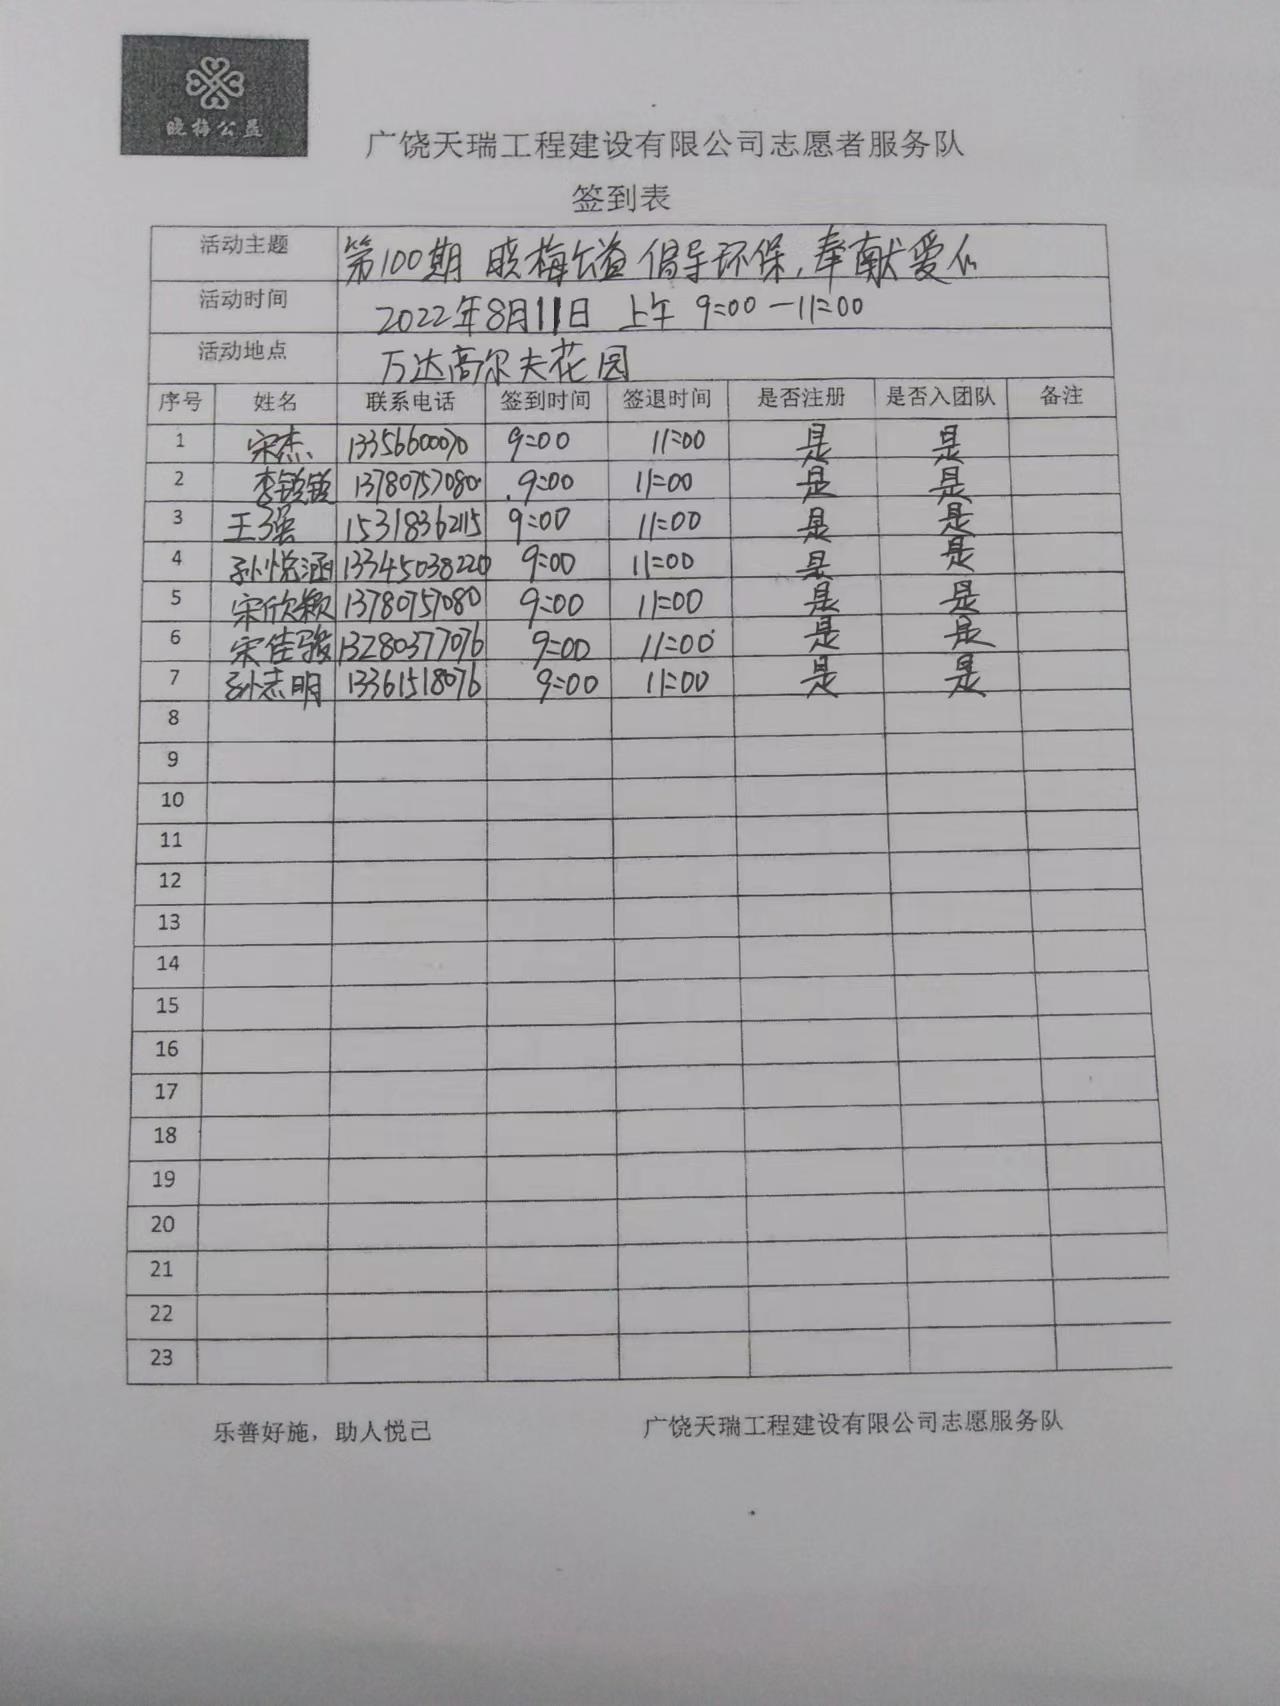 晓梅公益
广饶天瑞工程建设有限公司志愿者服务队
签到表
活动主题 第100期 晓梅公益 倡导环保,奉献爱心
活动时间 2022年8月11日 上午 9:00-11:00
活动地点 万达高尔夫花园
序号 姓名 联系电话 签到时间 签退时间 是否注册 是否入团队 备注
1 宋杰 13356600070 9:00 11:00 是 是
2 李锁锁 13780757080 9:00 11:00 是 是
3 王强 15318362115 9:00 11:00 是 是
4 孙悦涵 13345038220 9:00 11:00 是 是
5 宋欣颖 13780757080 9:00 11:00 是 是
6 宋佳骏 13280377076 9:00 11:00 是 是
7 孙志明 13361518076 9:00 11:00 是 是
8
9
10
11
12
13
14
15
16
17
18
19
20
21
22
23
乐善好施，助人悦己 广饶天瑞工程建设有限公司志愿服务队